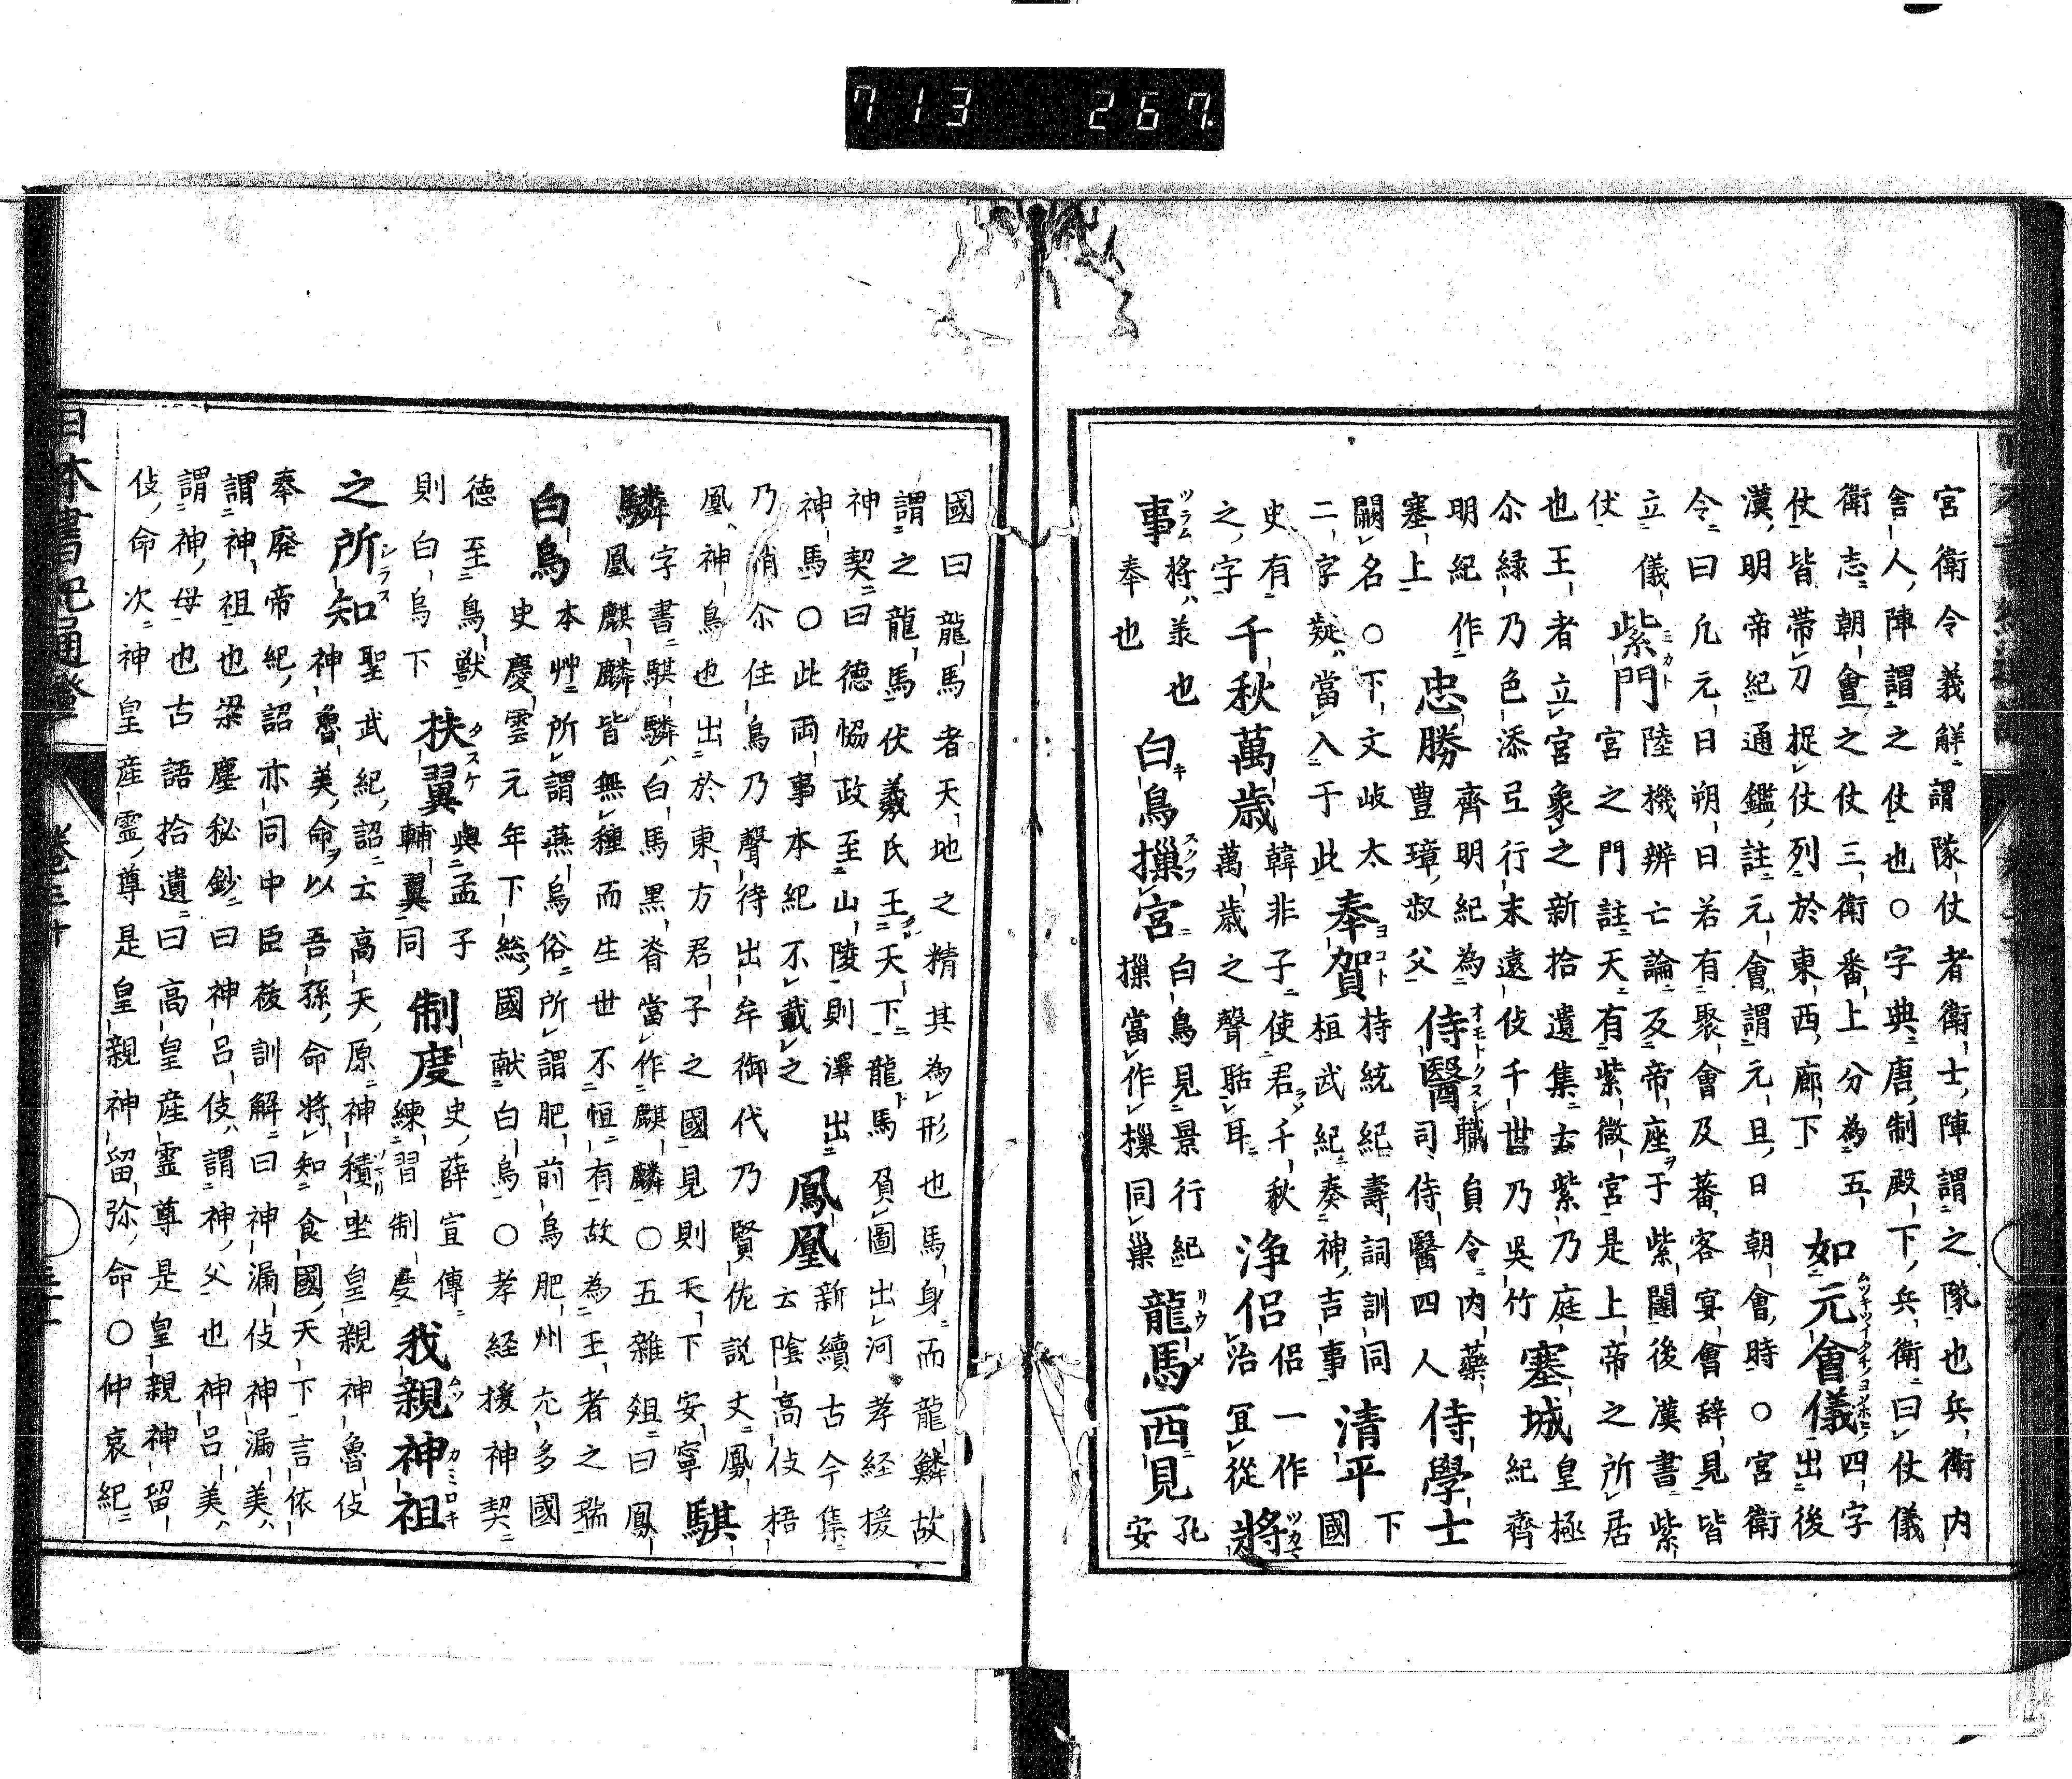 713 267.
宮衛令義解謂隊仗者衛士陣謂之隊也兵衛内
舎人陣謂之仗也○字典唐制殿下兵衛曰仗儀
衛志朝會之仗三衛番上分為五 如元會儀四字
仗皆帶刀捉仗列於東西廊下 出後
漢明帝紀通鑑註元會謂元旦日朝會時○宮衛
令曰凡元日朔日若有聚會及蕃客宴會辞見皆
立儀 紫門 陸機辨亡論反帝座于紫闥後漢書紫
仗 宮之門註天有紫微宮是上帝之所居
也王者立宮象之新拾遺集云紫乃庭 塞城 皇極
尒緑乃色添弖行末遠伎千世乃吳竹 紀齊
明紀作 忠勝 齊明紀為 侍醫 職員令内藥 侍學士
塞上 豊璋叔父 司侍醫四人
闕名○下文岐太 奉賀 持統紀壽詞訓同 清平 下
二字疑當入于此 桓武紀奏神吉事 國
史有 千秋萬歳 韓非子使君千秋 浄侶 侶一作 將
之字 萬歳之聲聒耳 治冝從
事 將義也 白鳥樔宮 白鳥見景行紀 龍馬西見 孔
奉也 樔當作樔同巢 安
國曰龍馬者天地之精其為形也馬身而龍鱗故
謂之龍馬伏羲氏王天下龍馬負圖出河孝経援
神契曰德恊政至山陵則澤出 鳳凰 新續古今集
神馬○此両事本紀不載之 云陰高伎梧
乃梢尒住鳥乃聲待出牟御代乃賢佐説文鳳 騏
凰神鳥也出於東方君子之國見則天下安寧
驎 字書騏驎白馬黒脊當作麒麟○五雜爼曰鳳
凰麒麟皆無種而生世不恒有故為王者之瑞
白烏 本艸所謂燕烏俗所謂肥前烏肥州尢多國
史慶雲元年下総國献白烏○孝経援神契
德至鳥獸 扶翼 與孟子 制度 史薛宣傳 我親神祖
則白烏下 輔翼同 練習制度
之所知 聖武紀詔云高天原神積坐皇親神魯伎
神魯美命以吾孫命將知食國天下言依
奉廢帝紀詔亦同中臣祓訓解曰神漏伎神漏美
謂神祖也梁塵秘鈔曰神呂伎謂神父也神呂美
謂神母也古語拾遺曰高皇産霊尊是皇親神留
伎命次神皇産霊尊是皇親神留弥命○仲哀紀
日本書紀通證
卷三十